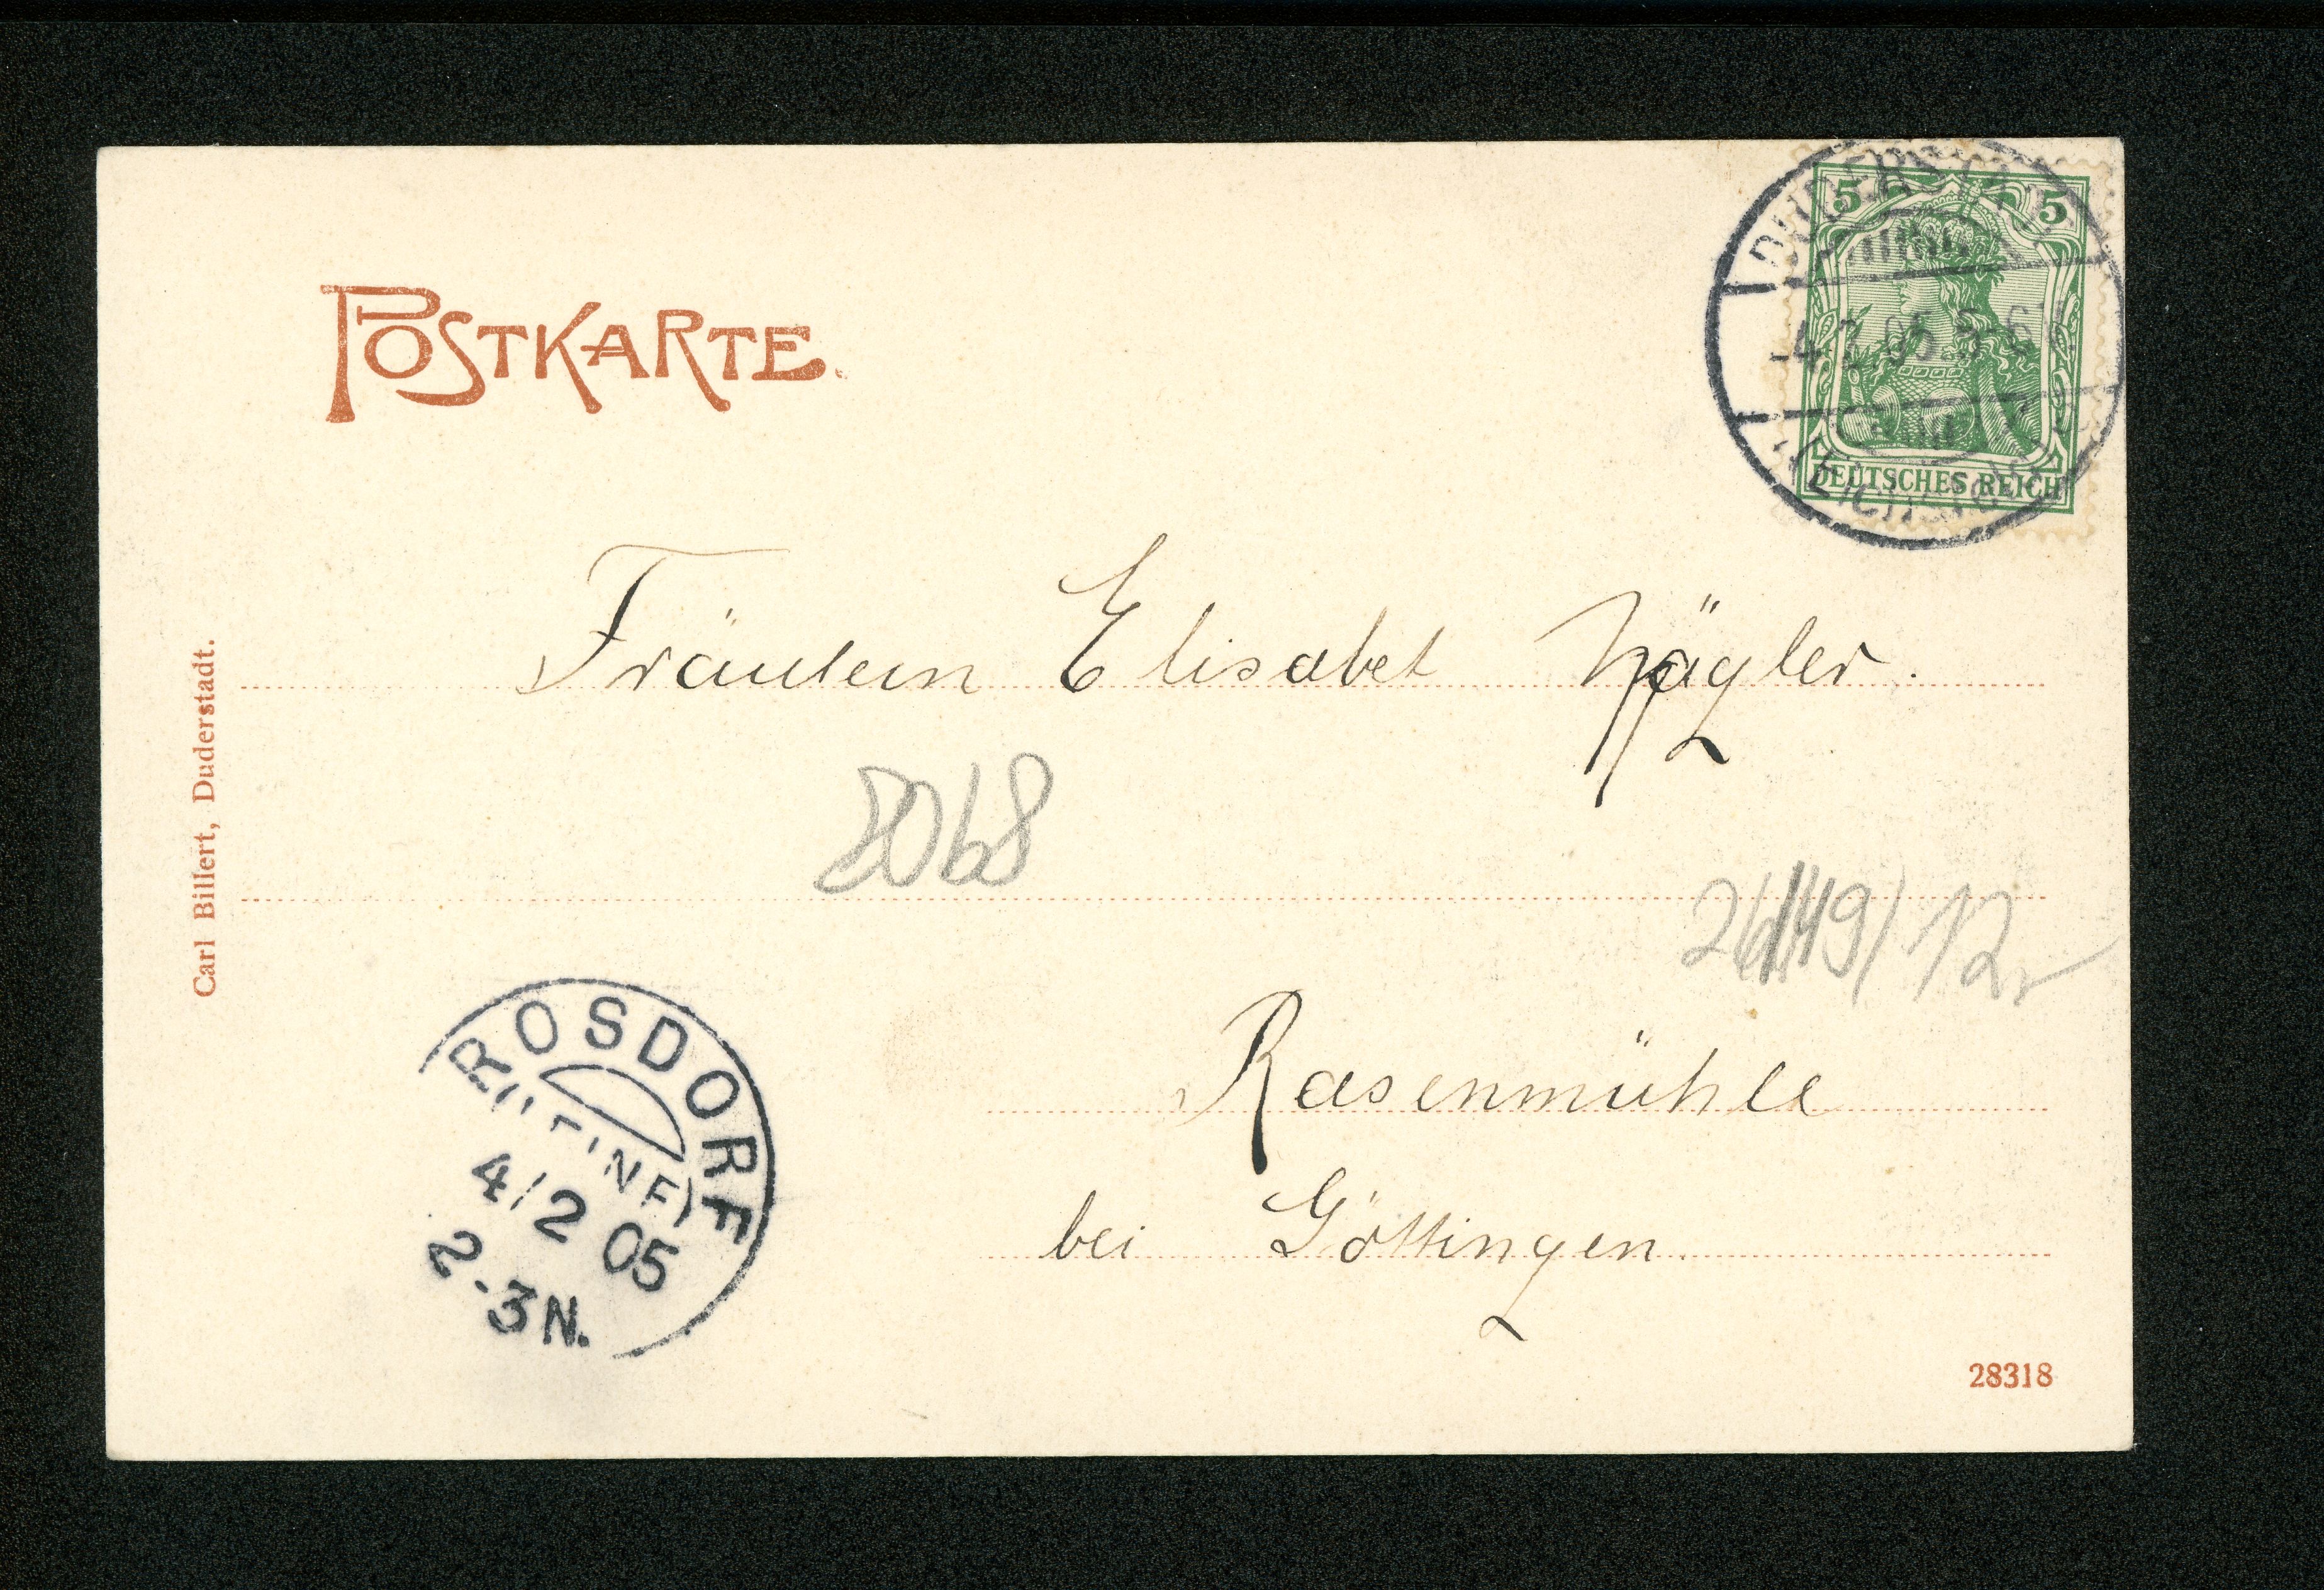 POSTKARTE.
5 5
DUDERSTADT
4.2.05.5-6
(EICHSFELD)
DEUTSCHES REICH
Fräulein Elisabet Nägler.
Carl Billert, Duderstadt.
8068
/12
ROSDORF
4/2 05
2-3N.
Rasenmühle
bei Göttingen.
28318